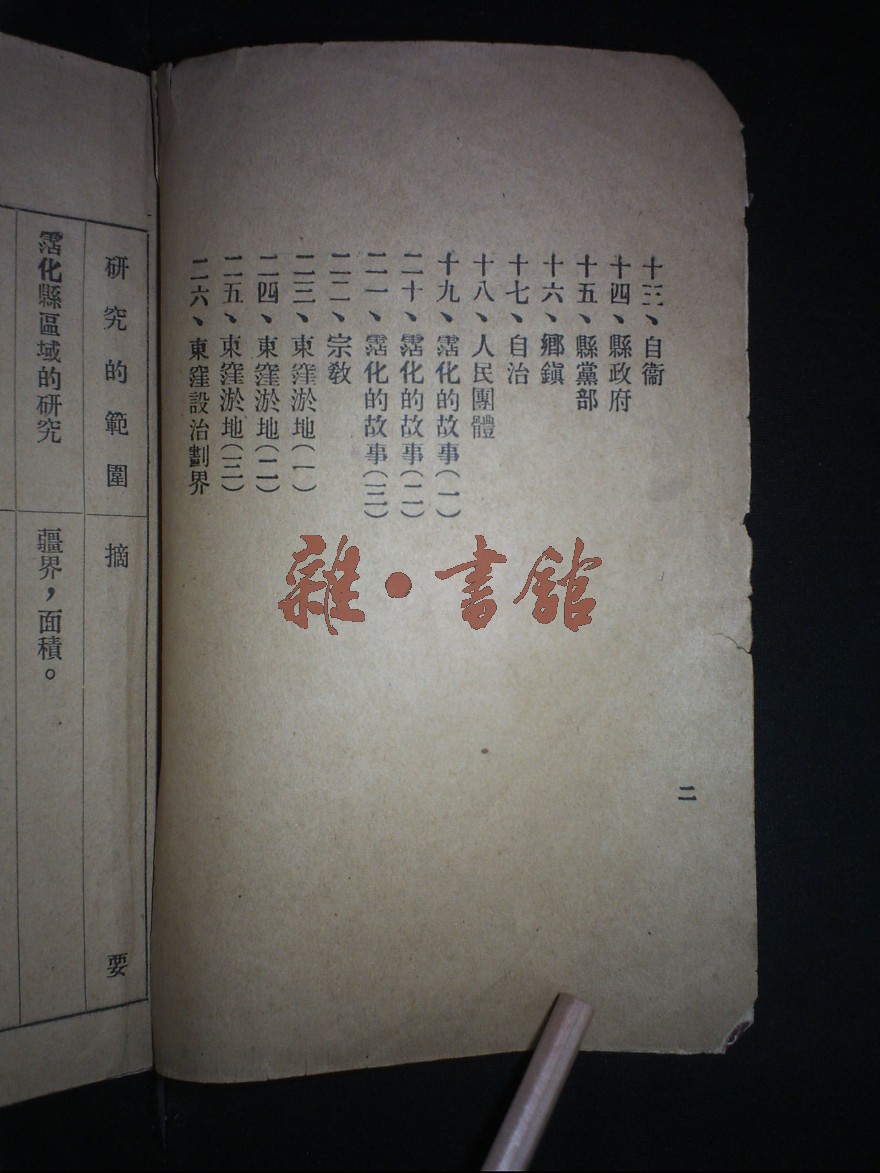 十三、自衞
十四、縣政府
十五、縣黨部
十六、鄉鎭
十七、自治
十八、人民團體
十九、霑化的故事(一)
二十、霑化的故事(二)
二一、霑化的故事(三)
二二、宗敎
二三、東窪淤地(一)
二四、東窪淤地(二)
二五、東窪淤地(三)
二六、東窪設治劃界
二
研究的範圍
摘要
霑化縣區域的研究
疆界，面積。
雜·書館